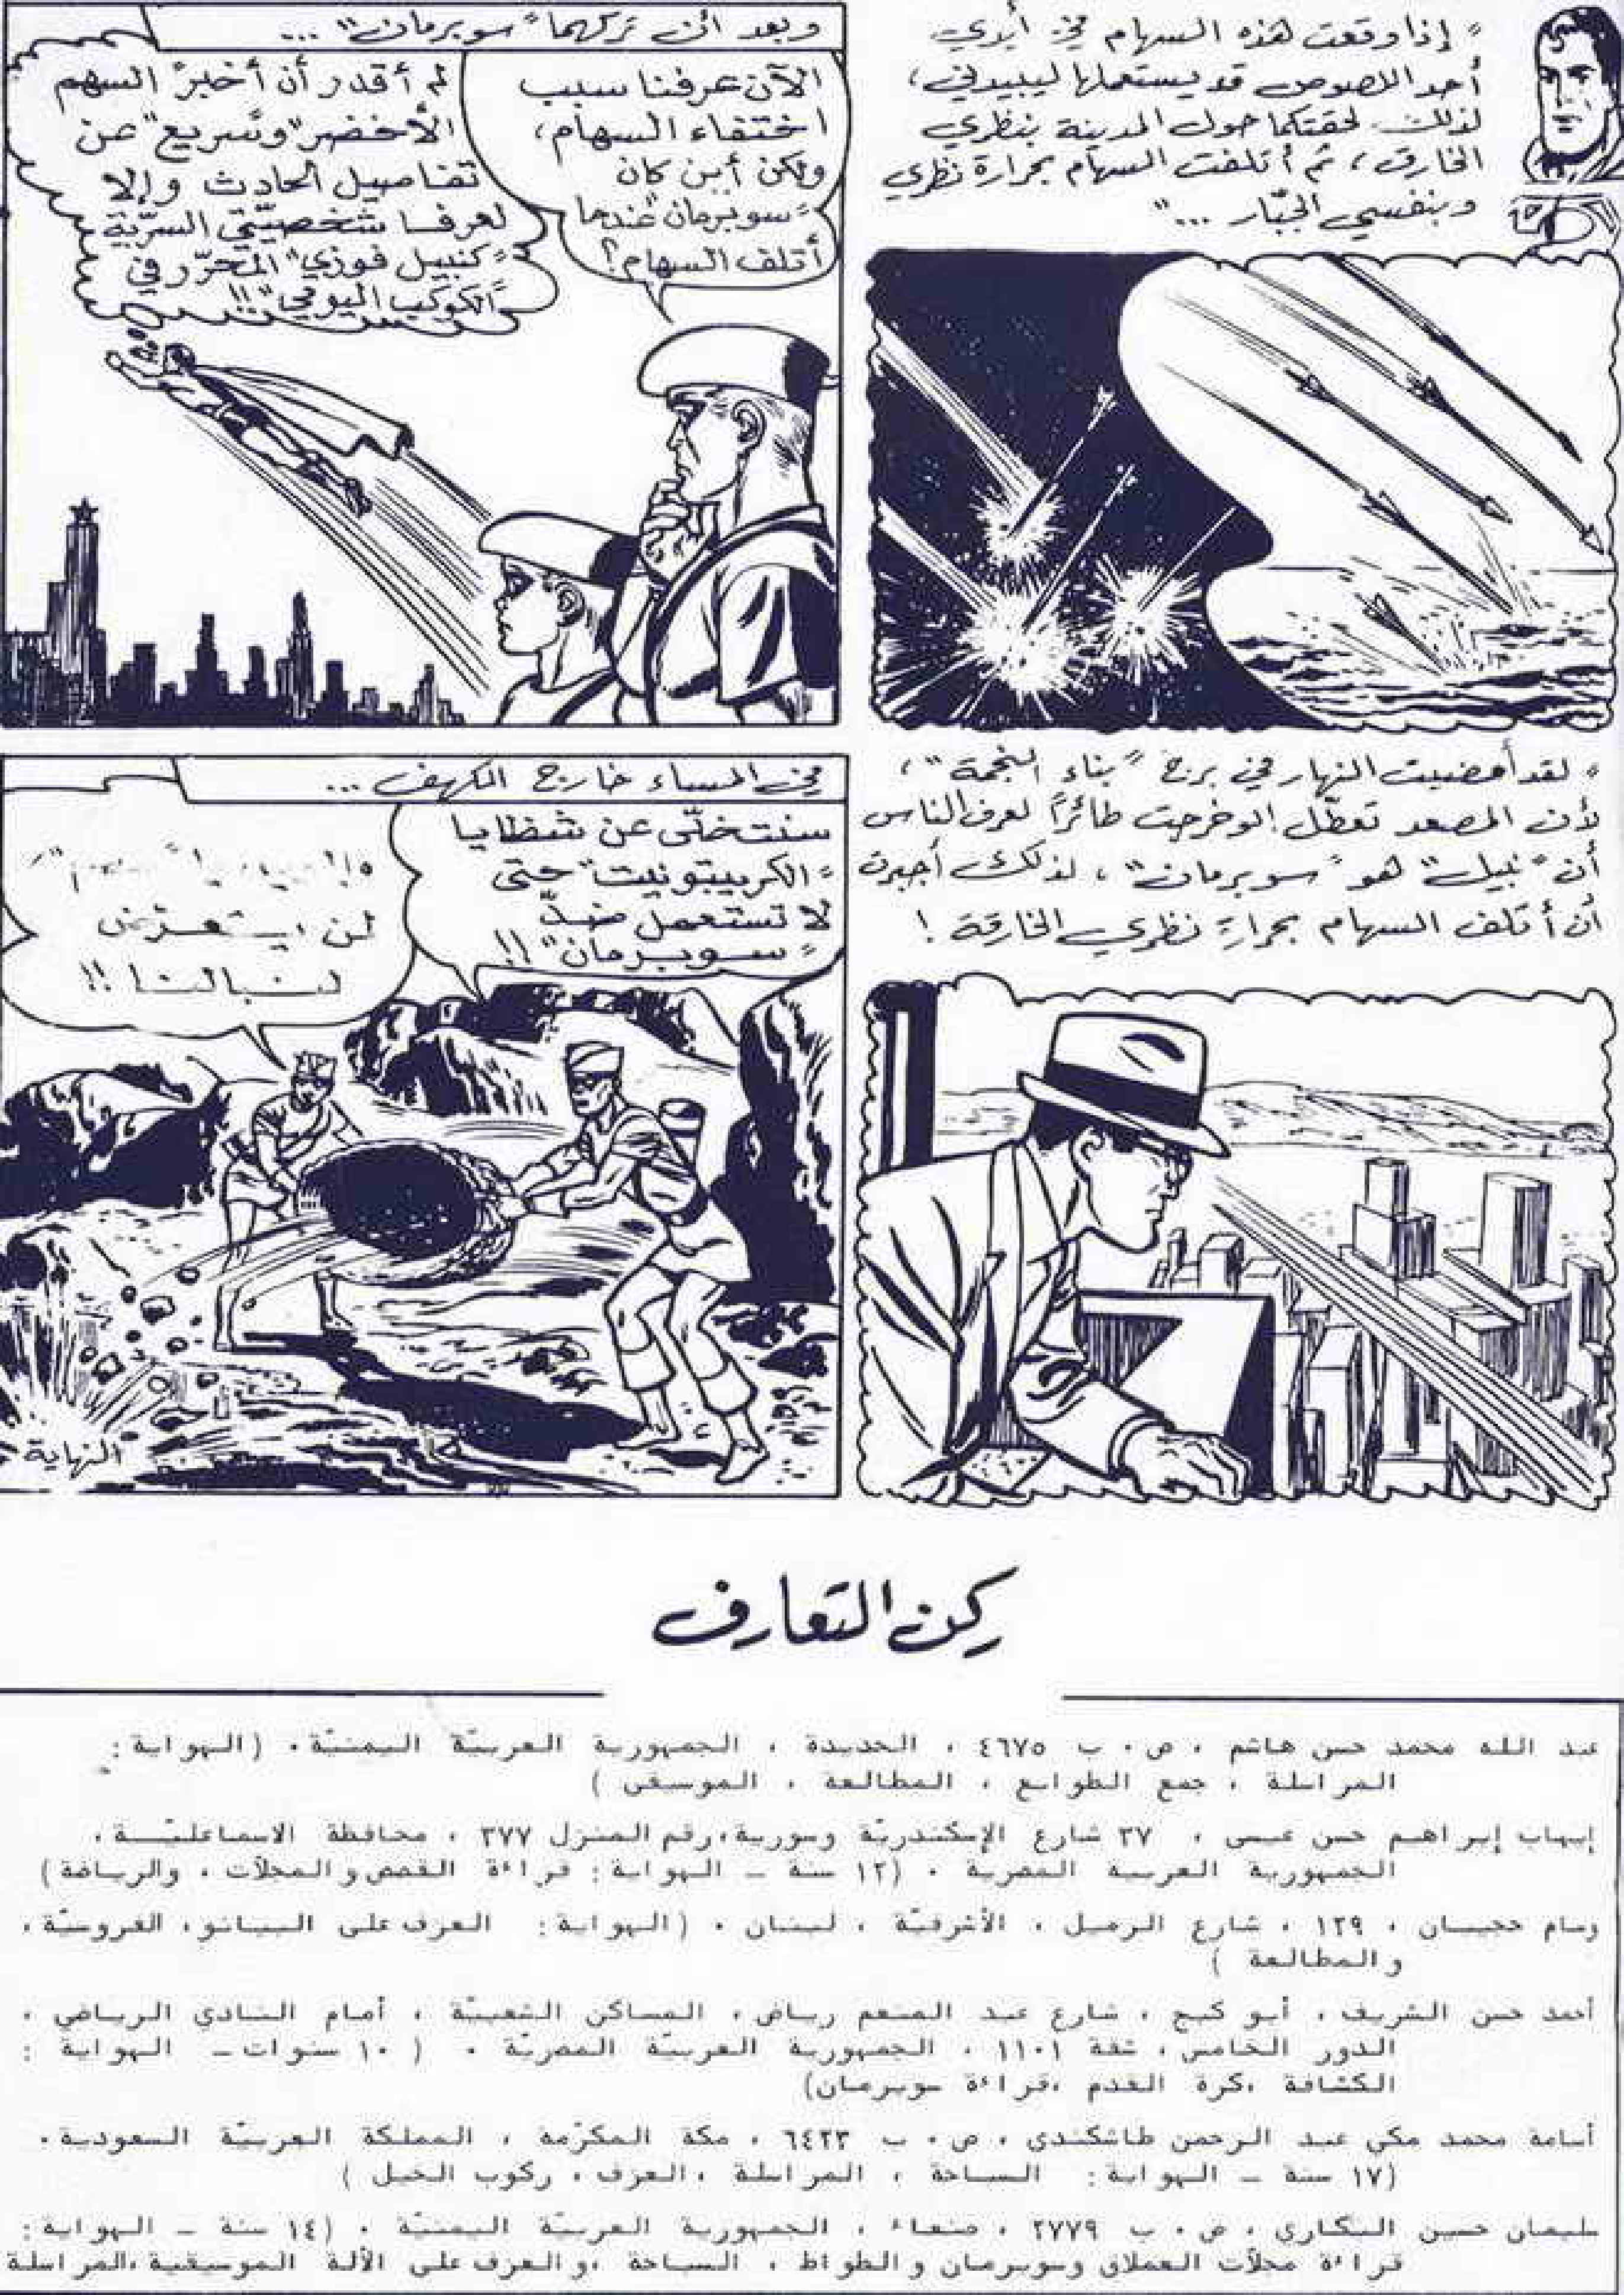 "إذا وقعت هذه السهام في أيدي
أحد اللصوص قد يستعملها ليبيدني،
لذلك لحقتكما حول المدينة بنظري
الخارق، ثم أتلفت السهام بحرارة نظري
وبنفسي الجبّار ..."
وبعد أن تركهما "سوبرمان" ...
الآن عرفنا سبب
اختفاء السهام،
ولكن أين كان
"سوبرمان" عندما
أتلف السهام؟
لم أقدر أن أخبر "السهم
الأخضر" و"سريع" عن
تفاصيل الحادث وإلا
لعرفا شخصيّتي السرّية
"كنبيل فوزي" المحرّر في
"الكوكب اليومي"!!
"لقد أمضيت النهار في برج "بناء النجمة"،
لأن المصعد تعطّل! لو خرجت طائرًا لعرف الناس
أن "نبيل" هو "سوبرمان"، لذلك أجبرت
أن أتلف السهام بحرارة نظري الخارقة!
في المساء خارج الكهف ...
سنتخلّى عن شظايا
"الكريبتونيت" حتى
لا تستعمل ضدّ
"سوبرمان"!!
لن
لنبالنا!!
النهاية
ركن التعارف
عبد الله محمد حسن هاشم ، ص. ب ٤٦٧٥ ، الحديدة ، الجمهورية العربيّة اليمنيّة. (الهواية:
المراسلة ، جمع الطوابع ، المطالعة ، الموسيقى )
إيهاب إبراهيم حسن عيسى ، ٣٧ شارع الإسكندريّة وسورية، رقم المنزل ٣٧٧ ، محافظة الاسماعليّـة،
الجمهورية العربية المصرية . (١٢ سنة _ الهواية: قراءة القصص والمجلات ، والرياضة)
وسام حجيبان ، ١٢٩ ، شارع الرميل ، الأشرفيّة ، لبنان . (الهواية: العزف على البيانو، الفروسيّة،
والمطالعة )
أحمد حسن الشريف، أبو كبيج ، شارع عبد المنعم رياض، المساكن الشعبيّة ، أمام النادي الرياضي ،
الدور الخامس، شقة ١١٠١ ، الجمهورية العربيّة المصريّة . ( ١٠ سنوات _ الهواية :
الكشافة ،كرة القدم ،قراءة سوبرمان)
أسامة محمد مكي عبد الرحمن طاشكندي ، ص. ب ٦٤٢٣ ، مكة المكرّمة ، المملكة العربيّة السعودية.
(١٧ سنة _ الهواية: السباحة ، المراسلة ،العزف ، ركوب الخيل )
سليمان حسين البكاري ، ص. ب ٢٧٧٩ ، صنعاء ، الجمهورية العربية اليمنيّة . (١٤ سنة _ الهواية:
قراءة مجلات العملاق وسوبرمان والوطواط ، السباحة ،والعزف على الآلة الموسيقية ،المراسلة